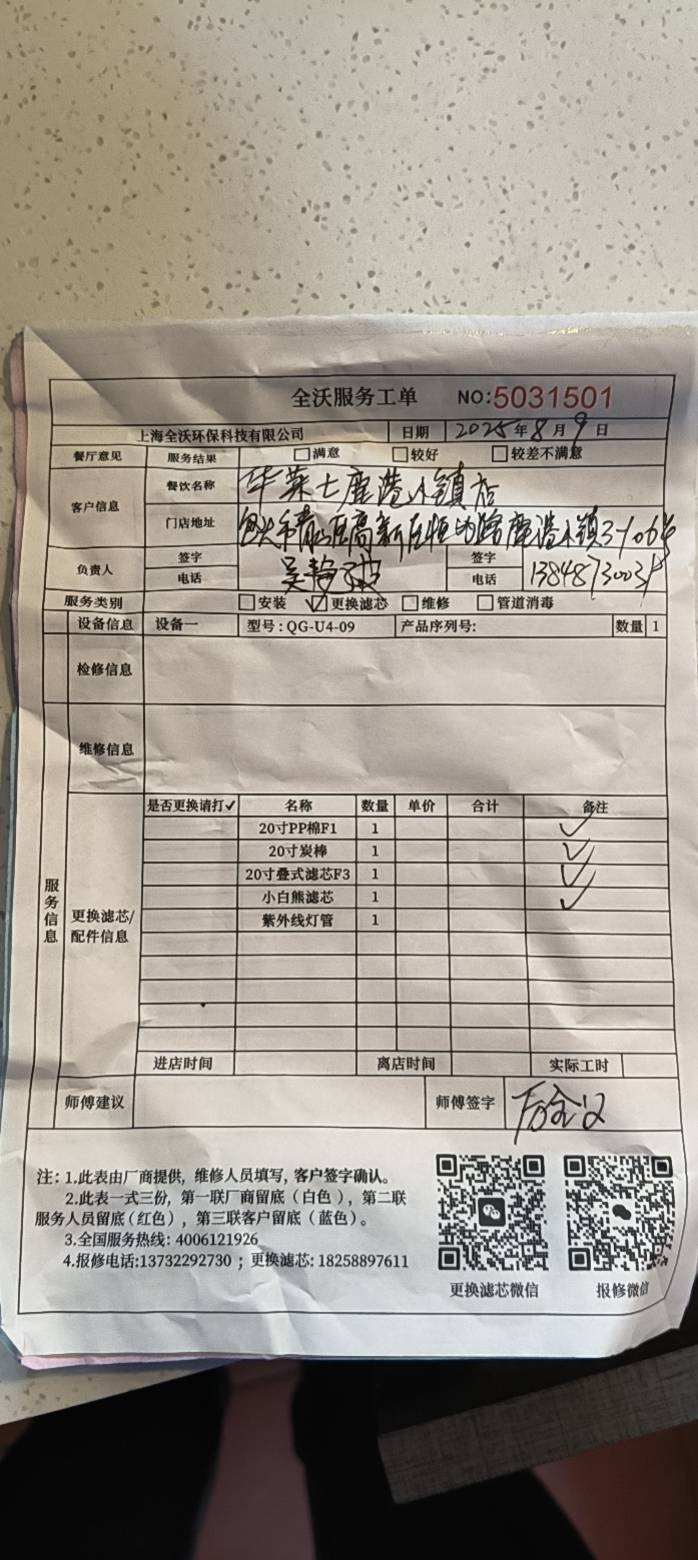 全沃服务工单 NO:5031501
上海全沃环保科技有限公司 日期 2025年8月9日
餐厅意见 服务结果 满意 较好 较差不满意
客户信息 餐饮名称 华莱士鹿港小镇店
门店地址 包头市青山区高新区恒 路鹿港小镇3-106号
负责人 签字 吴静 签字
电话 电话
服务类别 安装 ✓更换滤芯 维修 管道消毒
设备信息 设备一 型号:QG-U4-09 产品序列号: 数量 1
检修信息
维修信息
服务信息
更换滤芯/配件信息
是否更换请打✓ 名称 数量 单价 合计 备注
20寸PP棉F1 1 ✓
20寸炭棒 1 ✓
20寸叠式滤芯F3 1 ✓
小白熊滤芯 1 ✓
紫外线灯管 1
进店时间 离店时间 实际工时
师傅建议 师傅签字
注: 1.此表由厂商提供, 维修人员填写, 客户签字确认。
2.此表一式三份, 第一联厂商留底(白色), 第二联
服务人员留底(红色), 第三联客户留底(蓝色)。
3.全国服务热线: 4006121926
4.报修电话:13732292730 ; 更换滤芯: 18258897611
更换滤芯微信 报修微信